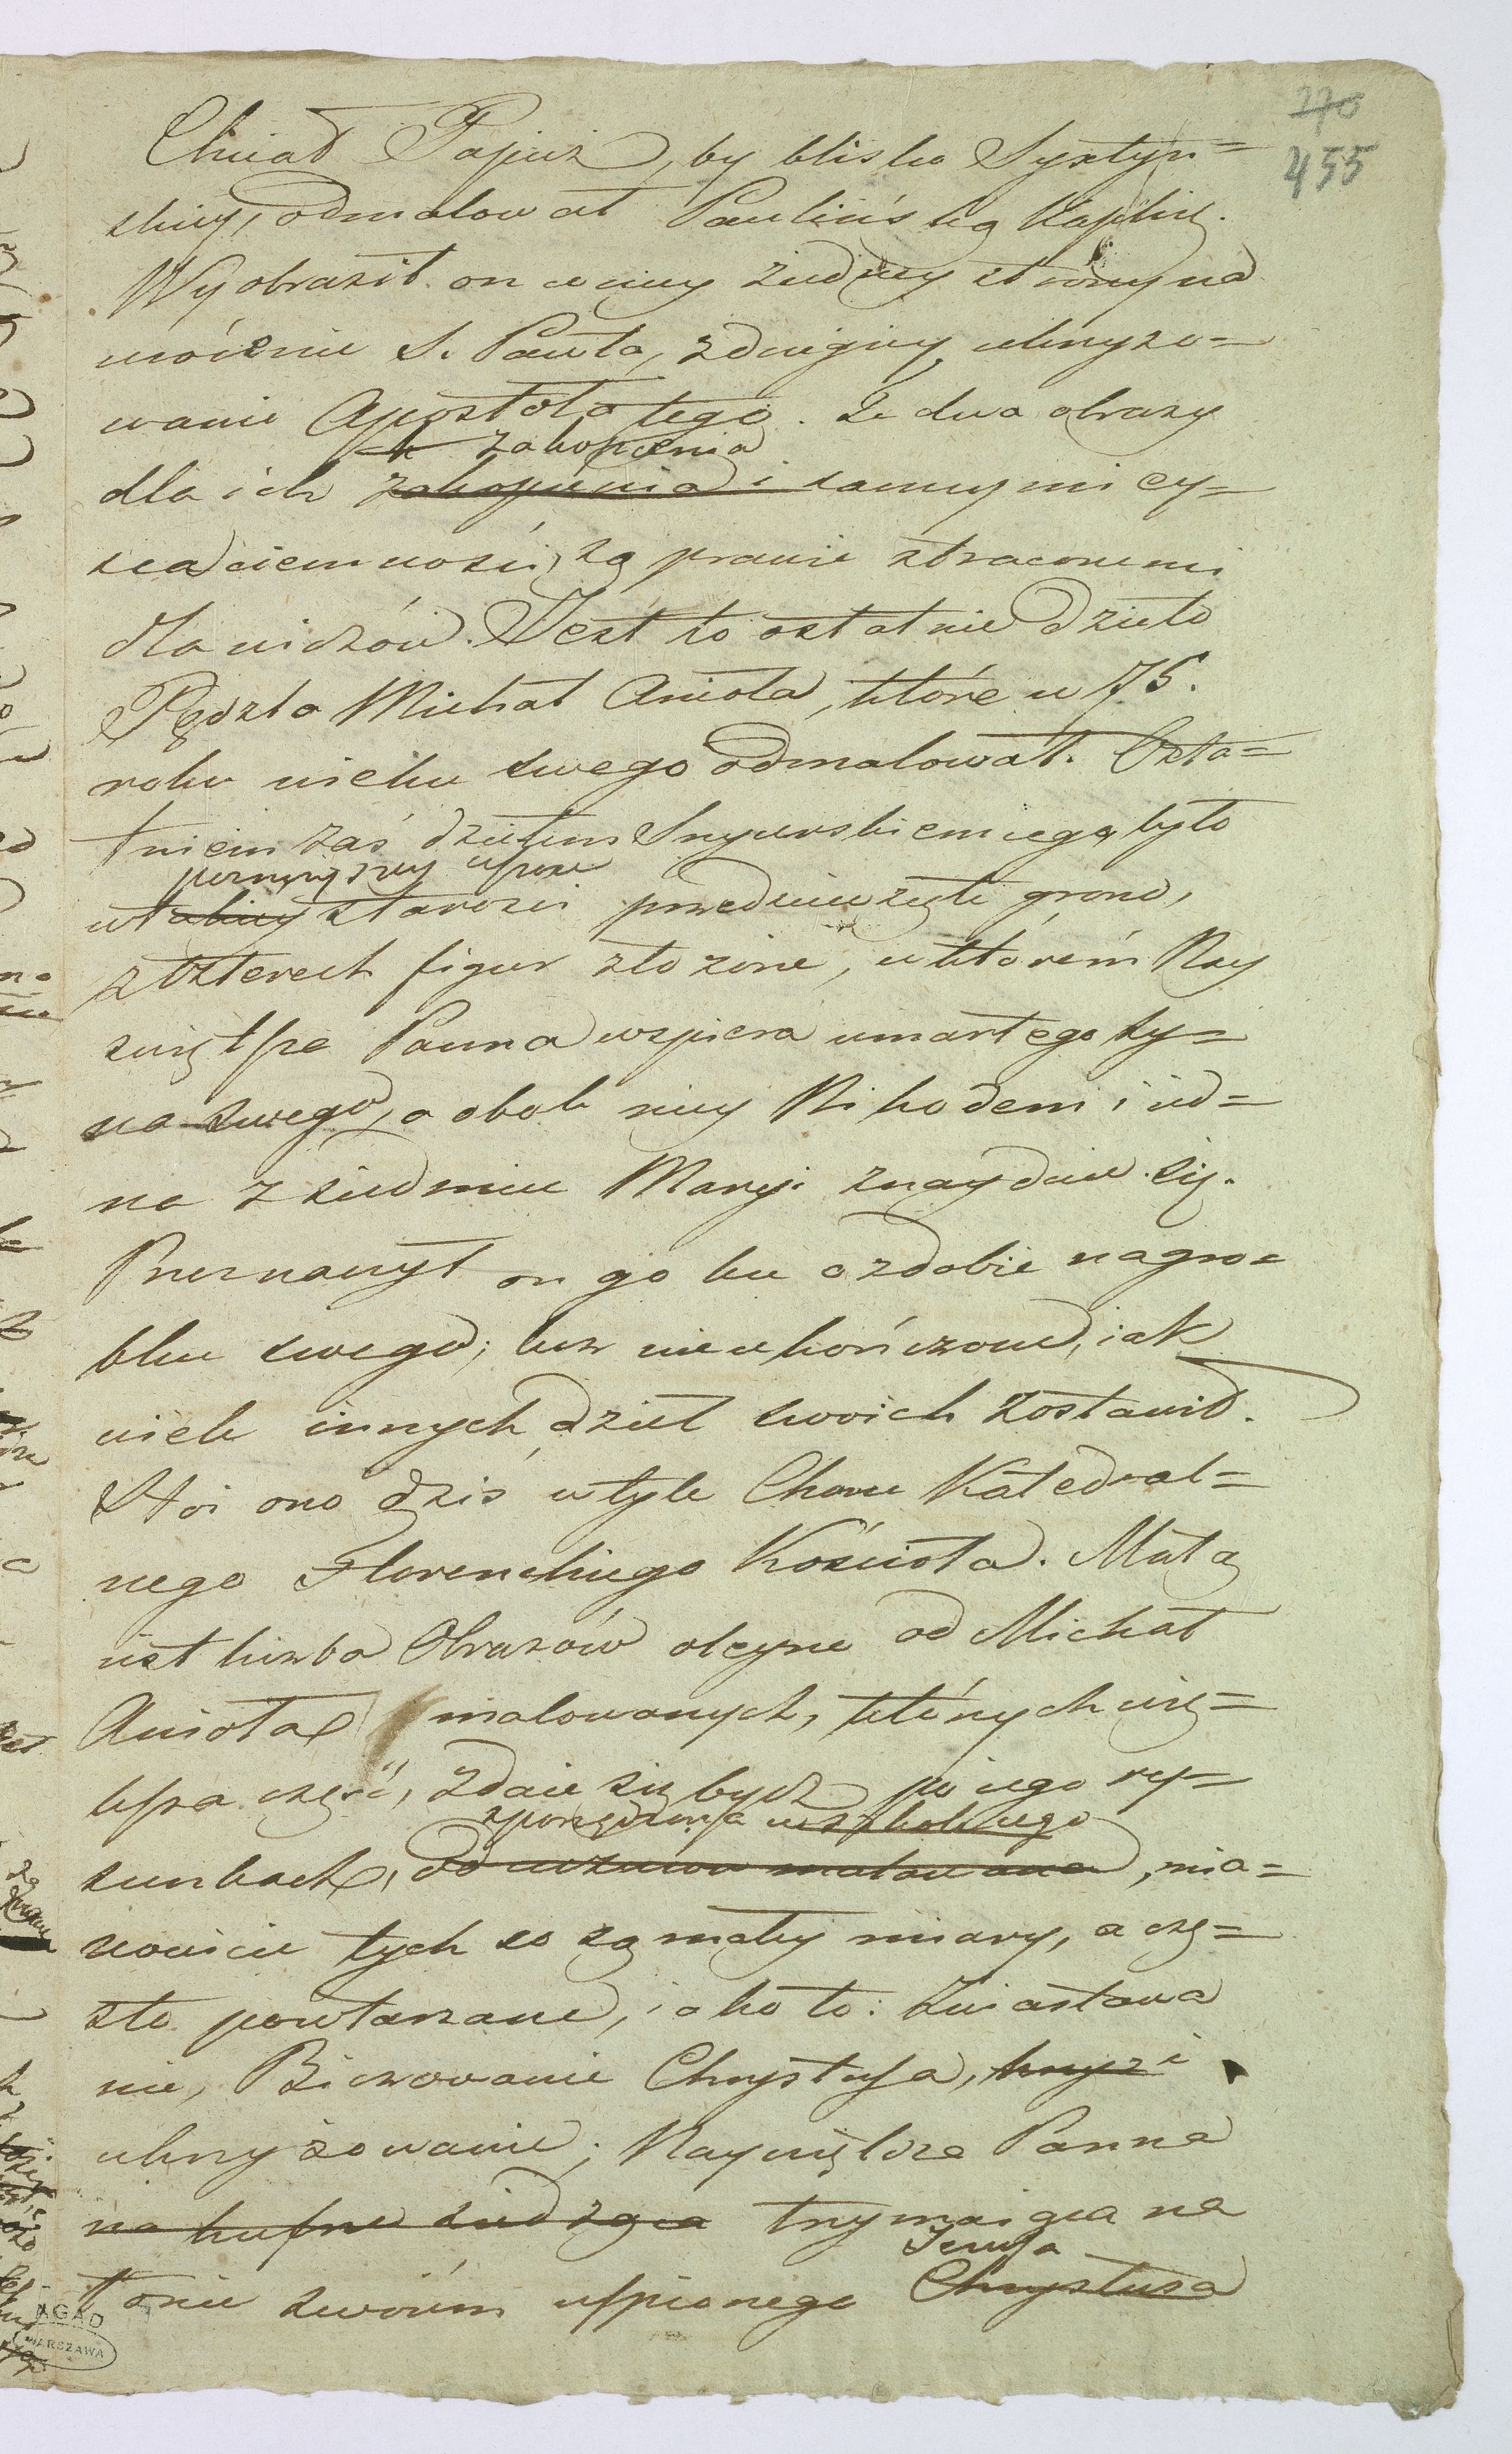 270
455
Chciał Papież, by blisko Syxtyń=
skiey, odmalował Paulińską Kaplicę.
Wyobraził on w niey z iedney strony na
wrócenie S. Pawła, z drugiey ukrzyżo=
wanie Apostoła tego. Te dwa obrazy
k zakopcenia
dla ich zakopcenia i samey miey=
sca ciemności, są prawie straconemi
dla widzów. Jest to ostatnie Dzieło
Pędzla Michał Anioła, które w 75.
roku wieku swego odmalował. Osta=
tniem zaś dziełem Snycerskiem iego było
w słabey starości przedsięwzięte grono,
z czterech figur złożone, w którém Nay
święttsze Panna wspiera umarłego Sy=
na swego, a obok niey Nikodem i ied=
na z siedmiu Maryi znayduie się.
Przeznaczył on go ku ozdobie nagro=
bku swego; lecz nieukończone, iak
wiele innych dzieł swoich zostawił.
Stoi ono dziś w tyle Choru Katedral=
nego Florenckiego Kościoła. Małą
iest liczba Obrazów oleyne od Michał
Anioła malowanych, których wię=
ksza część, zdaie się bydź po iego ry=
sporządzona w szkole iego
sunkach, od uczniów malowana, mia=
nowicie tych co są małey miary, a czę=
sto powtarzane, iako to: Zwiastowa
nie, Biczowanie Chrystusa, krzyżi
ukrzyżowanie; Nayświętsza Panna
na kufrze siedząca trzymaiąca na
Jezusa
łonie swoiém uśpionego Chrystusa
AGAD
WARSZAWA